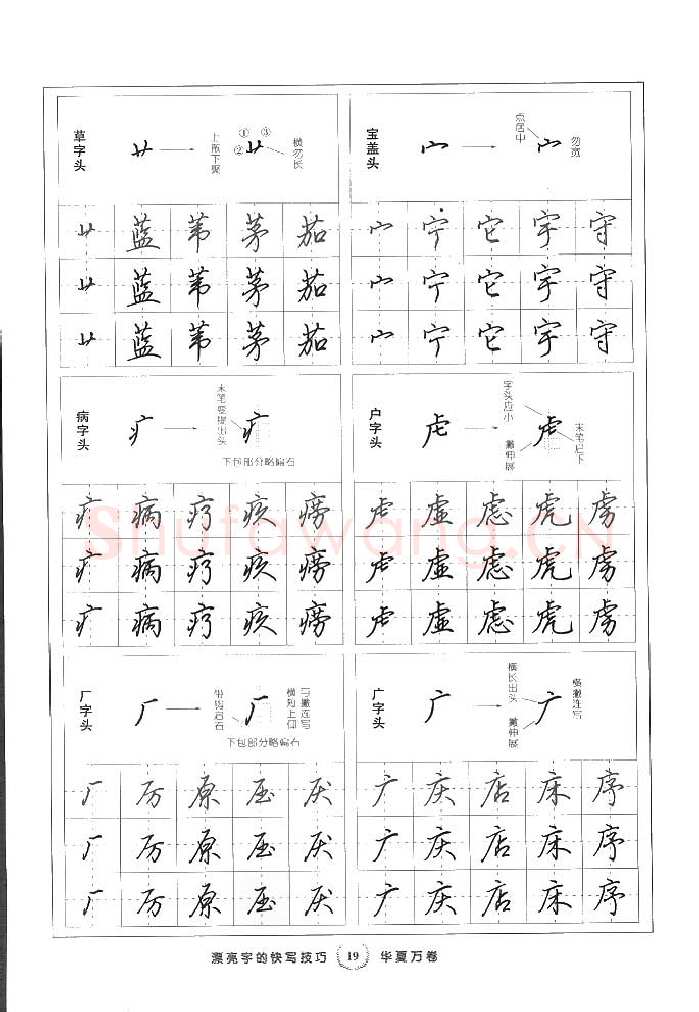 草字头
艹
上瓶下聚
① ③
②
艹
横勿长
艹 蓝 苇 茅 茄
艹 蓝 苇 茅 茄
艹 蓝 苇 茅 茄
宝盖头
宀
点居中
宀
勿宽
宀 宁 它 宇 守
宀 宁 它 宇 守
宀 宁 它 宇 守
病字头
疒
末笔要提出头
疒
下包部分略偏右
疒 病 疗 疾 痨
疒 病 疗 疾 痨
疒 病 疗 疾 痨
户字头
虍
字头应小
撇伸展
虍
末笔启下
虍 虚 虑 虎 虏
虍 虚 虑 虎 虏
虍 虚 虑 虎 虏
厂字头
厂
厂
横短上仰
与撇连写
下包部分略偏右
厂 厉 原 压 厌
厂 厉 原 压 厌
厂 厉 原 压 厌
广字头
广
横长出头
撇伸展
广
横撇连写
广 庆 店 床 序
广 庆 店 床 序
广 庆 店 床 序
Shufawang.CN
漂亮字的快写技巧 19 华夏万卷